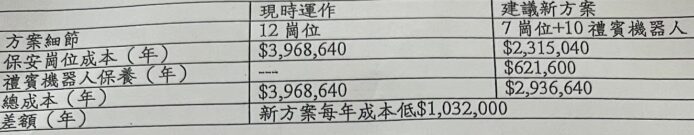 現時運作 建議新方案
方案細節 12 崗位 7 崗位+10 禮賓機器人
保安崗位成本（年） $3,968,640 $2,315,040
禮賓機器人保養（年） ---- $621,600
總成本（年） $3,968,640 $2,936,640
差額（年） 新方案每年成本低$1,032,000